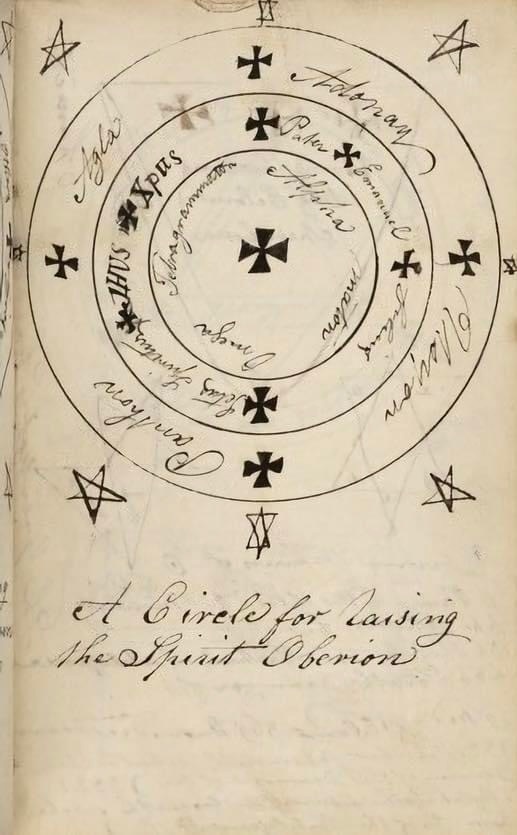 Adonay
Agla
Panthon
Pater
Emanuel
Filius
Sctus Spiritus
IHUS
Xpus
Alpha
Omega
Tetragrammaton
A Circle for raising
the Spirit Oberion